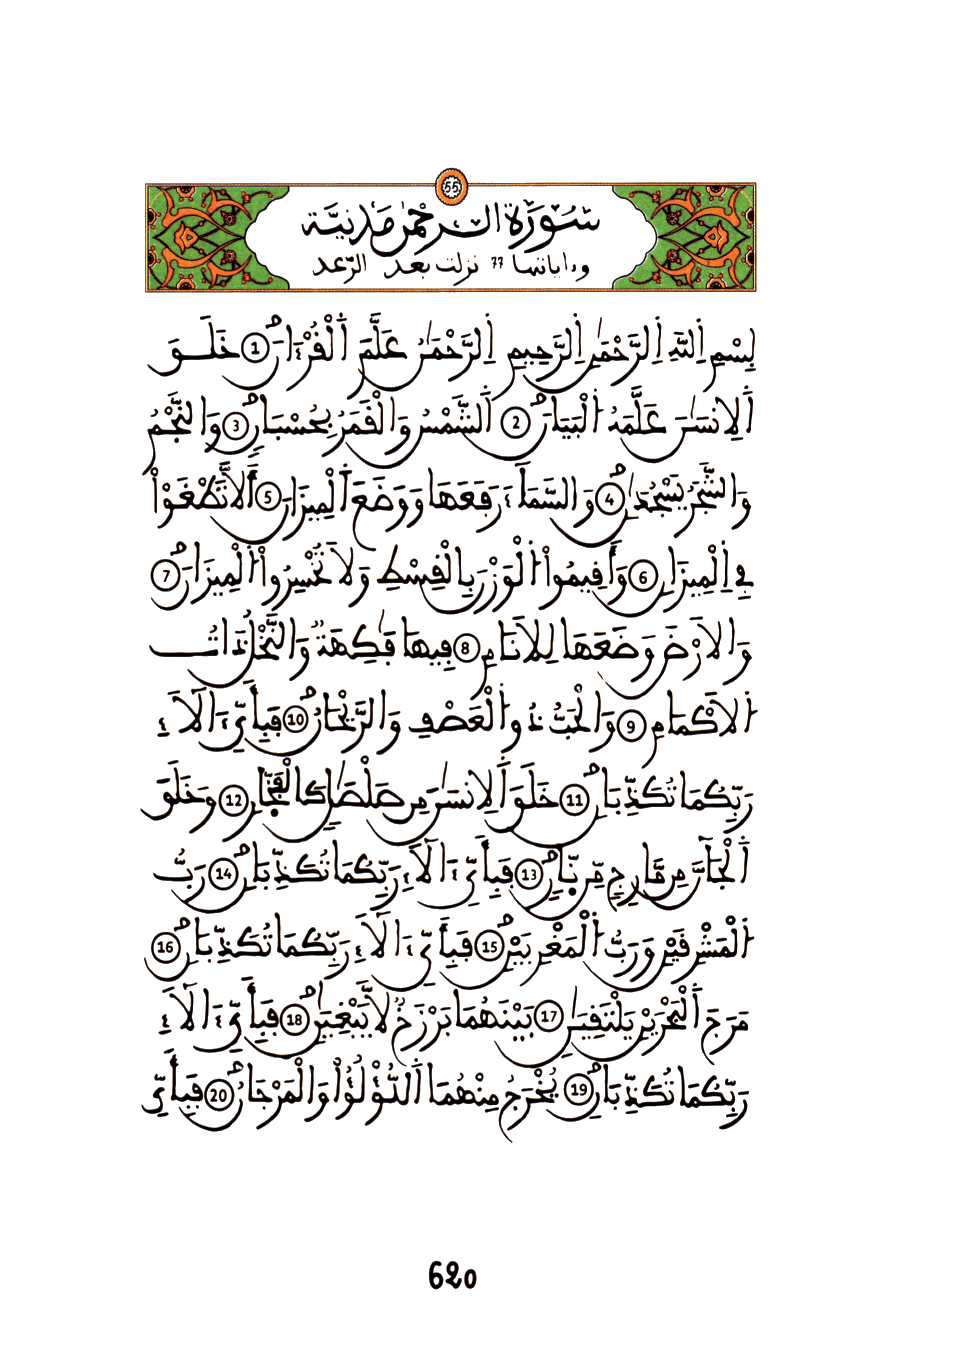 55
سُورَةُ الرَّحْمَٰن مَدَنِيَّة
وءاياتها 77 نزلت بعد الرّعد
بِسْمِ اِللَّهِ اِلرَّحْمَٰنِ اِلرَّحِيمِ اِلرَّحْمَٰنُ عَلَّمَ اَلْقُرْءَانَ 1 خَلَقَ
اَلِانسَٰنَ عَلَّمَهُ اُلْبَيَانَ 2 اَلشَّمْسُ وَالْقَمَرُ بِحُسْبَانٍ 3 وَالنَّجْمُ
وَالشَّجَرُ يَسْجُدَٰنِ 4 وَالسَّمَآءَ رَفَعَهَا وَوَضَعَ اَلْمِيزَانَ 5 أَلَّا تَطْغَوْاْ
فِي اِلْمِيزَانِ 6 وَأَقِيمُواْ اُلْوَزْنَ بِالْقِسْطِ وَلَا تُخْسِرُواْ اُلْمِيزَانَ 7
وَالَارْضَ وَضَعَهَا لِلَانَامِ 8 فِيهَا فَٰكِهَةٌ وَالنَّخْلُ ذَاتُ
اُلَاكْمَامِ 9 وَالْحَبُّ ذُو اُلْعَصْفِ وَالرَّيْحَانُ 10 فَبِأَيِّ ءَالَآءِ
رَبِّكُمَا تُكَذِّبَانِ 11 خَلَقَ اَلِانسَٰنَ مِن صَلْصَٰلٍ كَالْفَخَّارِ 12 وَخَلَقَ
اَلْجَآنَّ مِن مَّارِجٍ مِّن نَّارٍ 13 فَبِأَيِّ ءَالَآءِ رَبِّكُمَا تُكَذِّبَانِ 14 رَبُّ
اُلْمَشْرِقَيْنِ وَرَبُّ اُلْمَغْرِبَيْنِ 15 فَبِأَيِّ ءَالَآءِ رَبِّكُمَا تُكَذِّبَانِ 16
مَرَجَ اَلْبَحْرَيْنِ يَلْتَقِيَٰنِ 17 بَيْنَهُمَا بَرْزَخٌ لَّا يَبْغِيَٰنِ 18 فَبِأَيِّ ءَالَآءِ
رَبِّكُمَا تُكَذِّبَانِ 19 يُخْرَجُ مِنْهُمَا اَللُّؤْلُؤُاْ وَالْمَرْجَانُ 20 فَبِأَيِّ
620